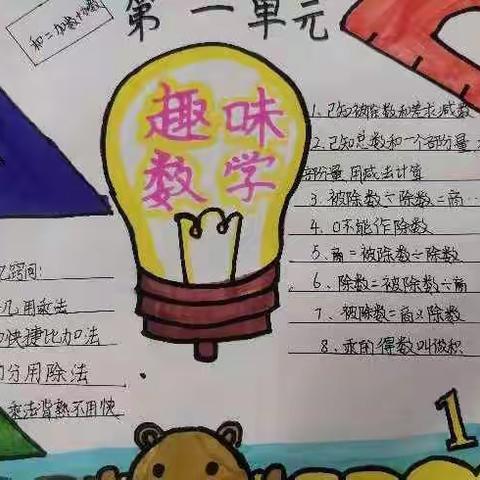 第一单元
和=加数+加数
趣味
数学
1、已知被除数和差求减数
2、已知总数和一个部分量
部分量,用减法计算
3、被除数÷除数=商…
4、0不能作除数
5、商=被除数÷除数
6、除数=被除数÷商
7、被除数=商×除数
8、乘的得数叫做积
窍门:
几用乘法
快捷比加法
分用除法
乘法背熟不用快
1